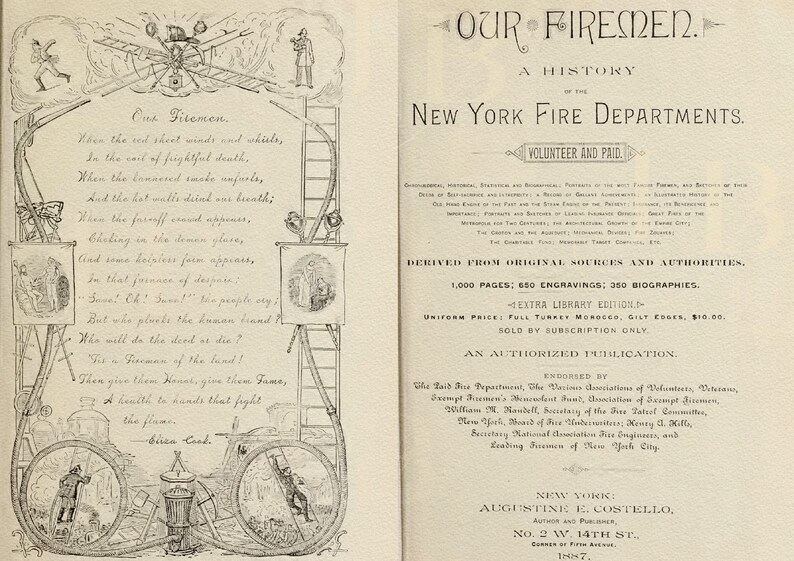 Our Firemen.
When the red sheet winds and whirls,
In the coil of frightful death,
When the bannered smoke unfurls,
And the hot walls drink our breath;
When the far-off crowd appears,
Choking in the demon glare,
And some helpless form appears,
In that furnace of despair;
"Save! Oh! Save!" the people cry;
But who plucks the human brand?
Who will do the deed or die?
'Tis a Fireman of the land!
Then give them Honor, give them Fame,
A health to hands that fight
the flame.
—Eliza Cook.
OUR FIREMEN.
A HISTORY
OF THE
NEW YORK FIRE DEPARTMENTS.
VOLUNTEER AND PAID.
CHRONOLOGICAL, HISTORICAL, STATISTICAL AND BIOGRAPHICAL; PORTRAITS OF THE MOST FAMOUS FIREMEN, AND SKETCHES OF THEIR
DEEDS OF SELF-SACRIFICE AND INTREPIDITY; A RECORD OF GALLANT ACHIEVEMENTS; AN ILLUSTRATED HISTORY OF THE
OLD HAND ENGINE OF THE PAST AND THE STEAM ENGINE OF THE PRESENT; INSURANCE, ITS BENEFICENCE AND
IMPORTANCE; PORTRAITS AND SKETCHES OF LEADING INSURANCE OFFICIALS; GREAT FIRES OF THE
METROPOLIS FOR TWO CENTURIES; THE ARCHITECTURAL GROWTH OF THE EMPIRE CITY;
THE CROTON AND THE AQUEDUCT; MECHANICAL DEVICES; FIRE ZOUAVES;
THE CHARITABLE FUND; MEMORABLE TARGET COMPANIES, ETC.
DERIVED FROM ORIGINAL SOURCES AND AUTHORITIES.
1,000 PAGES; 650 ENGRAVINGS; 350 BIOGRAPHIES.
EXTRA LIBRARY EDITION.
UNIFORM PRICE; FULL TURKEY MOROCCO, GILT EDGES, $10.00.
SOLD BY SUBSCRIPTION ONLY.
AN AUTHORIZED PUBLICATION.
ENDORSED BY
The Paid Fire Department, The Various Associations of Volunteers, Veterans,
Exempt Firemen's Benevolent Fund, Association of Exempt Firemen,
William M. Randell, Secretary of the Fire Patrol Committee,
New York, Board of Fire Underwriters; Henry A. Hills,
Secretary National Association Fire Engineers, and
Leading Firemen of New York City.
NEW YORK:
AUGUSTINE E. COSTELLO,
AUTHOR AND PUBLISHER,
No. 2 W. 14TH ST.,
CORNER OF FIFTH AVENUE.
1887.